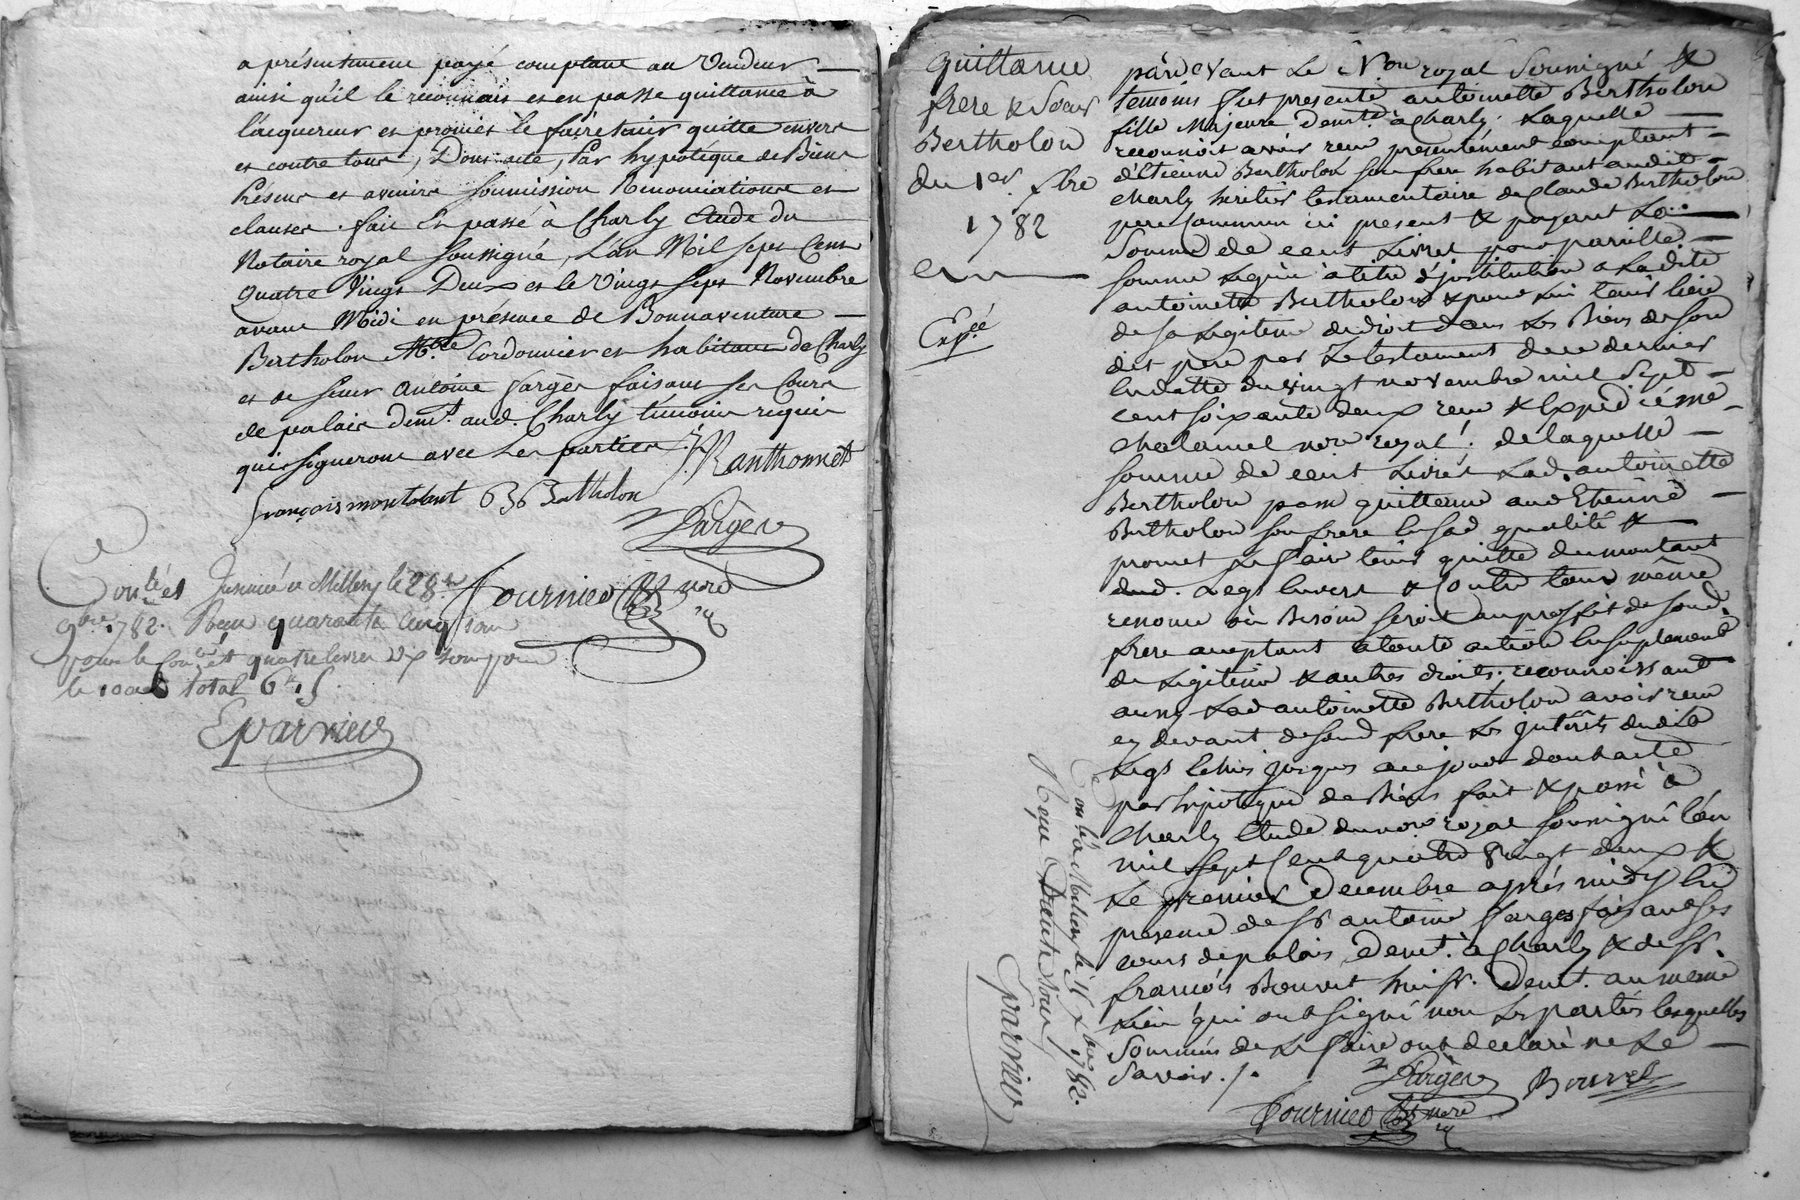 a présentement payé comptant au Vendeur
ainsi qu'il le reconnais et en passe quittance à
l'acquereur et promet le faire tenir quitte envers
et contre tous, Dont acte, Par hypotéque de Biens
Présens et avenirs soumission Renonciations et
clauses. fait et passé à Charly Etude du
Notaire royal soussigné, L'an Mil sept Cent
quatre Vingt Deux et le Vingt sept Novembre
avant Midi en présence de Bonnaventure
Bertholon Me. Cordonnier et habitant de Charly
et de sieur Antoine fargès faisant ses Cours
de palais demt. aud. Charly témoins requis
qui signeront avec les parties. Ranthonnet
françois montalant B Bertholon
fargès
Conlé et Insinué a Millery le 28
9bre 1782. Reçu quarante cinq sous
pour le Conlé et quatre livres dix sous pour
le total 6# 15
fournier nore
Eparvier
quittance
frere & Soeur
Bertholon
du 1er. xbre
1782
Expée
pardevant Le Nore royal soussigné &
temoins fut presente antoinette Bertholon
fille Majeure demte. à Charly. Laquelle
reconnoit avoir reçu présentement comptant
d'étienne Bertholon son frere habitant audit
Charly héritier testamentaire de Claude Bertholon
pere commun ici present & payant La
somme de cent Livres pour pareille
somme Leguée à titre d'institution a Ladite
antoinette Bertholon & pour lui tenir lieu
de sa Legitime de droit dans Les Biens de son
dit pere par Le testament de ce dernier
en datte du vingt novembre mil sept
cent soixante deux reçu & Expédié Me
chalamel nore royal. de laquelle
somme de cent Livres Lad. antoinette
Bertholon passe quittance aud. Etienne
Bertholon son frere en sad. qualité &
promet Le faire tenir quitte du montant
dud. Legs Envers & Contre tous même
renonce où Besoin seroit au proffit de soud.
frere acceptant à toute action en suplement
de Legitime & autres droits. reconnoissant
aussy Lad. antoinette Bertholon avoir reçu
cy devant de soud. frere Les Intérêts dudit
Legs Echus jusques à ce jour dont acte
par hipotéque de Biens fait & passé à
Charly Etude du nore royal soussigné L'an
mil sept Cent quatre Vingt deux &
Le premier Decembre après midy En
presence de Sr antoine farges faisant ses
cours de palais demt. à Charly & de Sr.
françois Bouvet huissr. demt. au meme
Lieu qui ont signé non Les parties lesquelles
sommées de Le faire ont declaré ne Le
savoir ./.
fargès Bouvet
fournier nore
Conlé a Millery le 11 xbre 1782.
Reçu Trente sous
Eparvier